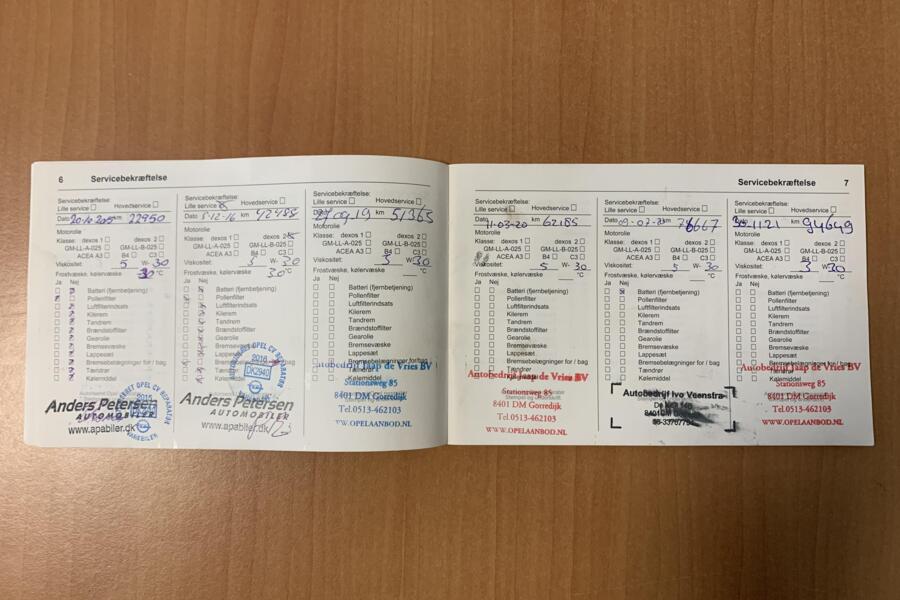 6 Servicebekræftelse
Servicebekræftelse:
Lille service Hovedservice
Dato 20-10-2015 km 22950
Motorolie
Klasse: dexos 1 dexos 2
GM-LL-A-025 GM-LL-B-025
ACEA A3 B4 C3
Viskositet: 5 W- 30
Frostvæske, kølervæske 30 °C
Ja Nej
Batteri (fjernbetjening)
Pollenfilter
Luftfilterindsats
Kilerem
Tandrem
Brændstoffilter
Gearolie
Bremsevæske
Lappesæt
Bremsebelægninger for / bag
Tændrør
Kølemiddel
Anders Petersen
AUTOMOBILER
www.apabiler.dk
Servicebekræftelse:
Lille service Hovedservice
Dato 5-12-16 km 42985
Motorolie
Klasse: dexos 1 dexos 2
GM-LL-A-025 GM-LL-B-025
ACEA A3 B4 C3
Viskositet: 5 W- 30
Frostvæske, kølervæske 30 °C
Ja Nej
Batteri (fjernbetjening)
Pollenfilter
Luftfilterindsats
Kilerem
Tandrem
Brændstoffilter
Gearolie
Bremsevæske
Lappesæt
Bremsebelægninger for / bag
Tændrør
Kølemiddel
2016
DK2940
Anders Petersen
AUTOMOBILER
www.apabiler.dk
Servicebekræftelse:
Lille service Hovedservice
09,19 km 51365
Motorolie
Klasse: dexos 1 dexos 2
GM-LL-A-025 GM-LL-B-025
ACEA A3 B4 C3
Viskositet: 5 W- 30
Frostvæske, kølervæske °C
Ja Nej
Batteri (fjernbetjening)
Pollenfilter
Luftfilterindsats
Kilerem
Tandrem
Brændstoffilter
Gearolie
Bremsevæske
Lappesæt
Bremsebelægninger for/bag
Autobedrijf Jaap de Vries BV
Stationsweg 85
8401 DM Gorredijk
Tel.0513-462103
WWW.OPELAANBOD.NL
Servicebekræftelse 7
Servicebekræftelse:
Lille service Hovedservice
Dato 11-03-20 km 62185
Motorolie
Klasse: dexos 1 dexos 2
GM-LL-A-025 GM-LL-B-025
ACEA A3 B4 C3
Viskositet: 5 W- 30
Frostvæske, kølervæske °C
Ja Nej
Batteri (fjernbetjening)
Pollenfilter
Luftfilterindsats
Kilerem
Tandrem
Brændstoffilter
Gearolie
Bremsevæske
Lappesæt
Bremsebelægninger for / bag
Tændrør
Kølemiddel
Autobedrijf Jaap de Vries BV
Stationsweg 85
8401 DM Gorredijk
Tel.0513-462103
WWW.OPELAANBOD.NL
Servicebekræftelse:
Lille service Hovedservice
Dato km
Motorolie
Klasse: dexos 1 dexos 2
GM-LL-A-025 GM-LL-B-025
ACEA A3 B4 C3
Viskositet: 5 W- 30
Frostvæske, kølervæske °C
Ja Nej
Batteri (fjernbetjening)
Pollenfilter
Luftfilterindsats
Kilerem
Tandrem
Brændstoffilter
Gearolie
Bremsevæske
Lappesæt
Bremsebelægninger for / bag
Tændrør
Kølemiddel
Autobedrijf Ivo Veenstra
Servicebekræftelse:
Lille service Hovedservice
30-11-21 km 94649
Motorolie
Klasse: dexos 1 dexos 2
GM-LL-A-025 GM-LL-B-025
ACEA A3 B4 C3
Viskositet: 5 W- 30
Frostvæske, kølervæske °C
Ja Nej
Batteri (fjernbetjening)
Pollenfilter
Luftfilterindsats
Kilerem
Tandrem
Brændstoffilter
Gearolie
Bremsevæske
Lappesæt
Bremsebelægninger for / bag
Tændrør
Kølemiddel
Autobedrijf Jaap de Vries BV
Stationsweg 85
8401 DM Gorredijk
Tel.0513-462103
WWW.OPELAANBOD.NL